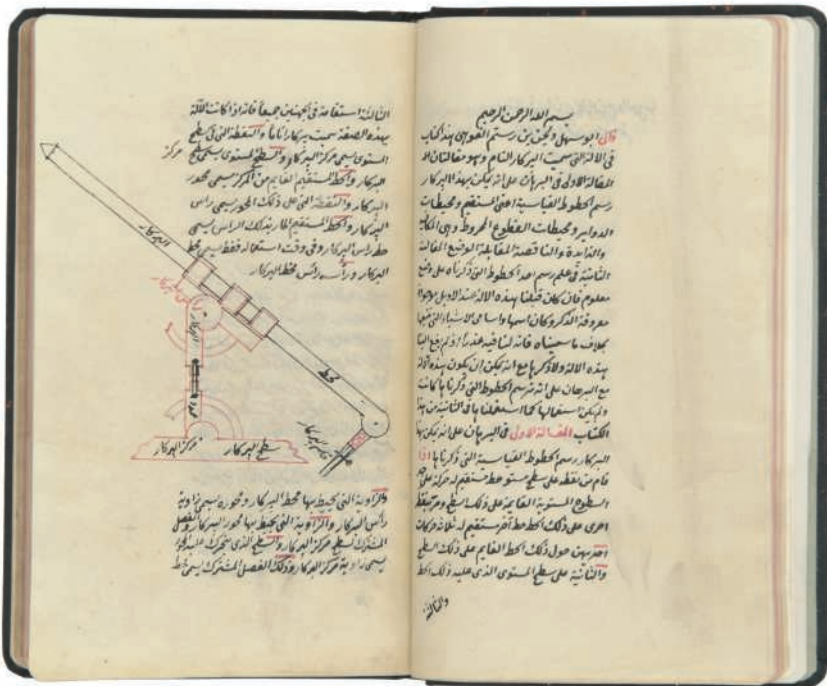 بسم الله الرحمن الرحيم
قال ابو سهل ويجن بن رستم القوهي هذا كتاب
في الالة التي سميت البركار التام وهو مقالتان
المقالة الاولى في البرهان على انه يمكن بهذا البركار
رسم الخطوط القياسية اعني المستقيم ومحيطات
الدواير ومحيطات القطوع المخروط وهي المكافي
والزايدة والناقصة المقابلة الوضع المقالة
الثانية في علم رسم احد الخطوط التي ذكرناه على وضع
معلوم فان كان قبلنا بهذه الالة عند الاويل موجودا
معروفة الذكر وكان اسمها واسامي الاشياء التي
بخلاف ما سميناه فانه لنا فيه عذرا اذ لم يقع الينا
هذه الالة ولا ذكرها مع انه يمكن ان يكون هذه الالة
مع البرهان على انه ترسم الخطوط التي ذكرنا ها كانت
ولم يكن استعمالها كما استعملنا ها في الثانية من هذا
الكتاب المقالة الاولى في البرهان على انه يمكن بهذا
البركار رسم الخطوط القياسية التي ذكرنا ها اذا
قام من نقطة على سطح مستو خط مستقيم له حركة على
السطوح المستوية القايمة على ذلك السطح ومر بنقطة
اخرى على ذلك الخط خط آخر مستقيم له ثلاثة حركات
احديهن حول ذلك الخط القايم على ذلك السطح
والثانية على سطح المستوى الذى عليه ذلك الخط
والثالثة
الثالثة استقامة في الجهتين جميعا فانه اذا كانت الالة
بهذه الصفة سميت بركارا تاما والنقطة التي في سطح
المستوى يسمى مركز البركار والسطح المستوى يسمى سطح مركز
البركار والخط المستقيم القايم من المركز يسمى محور
البركار والنقطة التي على ذلك المحور يسمى راس
البركار والخط المستقيم المار بذلك الراس يسمى
خط راس البركار وفي وقت استعماله فقط يسمى مخط
البركار وراسه راس مخط البركار
البركار
راس البركار
البركار
محور
مخط
قلم البركار
مركز البركار
سطح البركار
والزاوية التي يحيط بها مخط البركار ومحوره يسمى زاوية
راس البركار والزاوية التي يحيط بها محور البركار والفصل
المشترك لسطح مركز البركار والسطح الذى يتحرك عليه المحور
يسمى زاوية مركز البركار وذلك الفصل المشترك يسمى خط